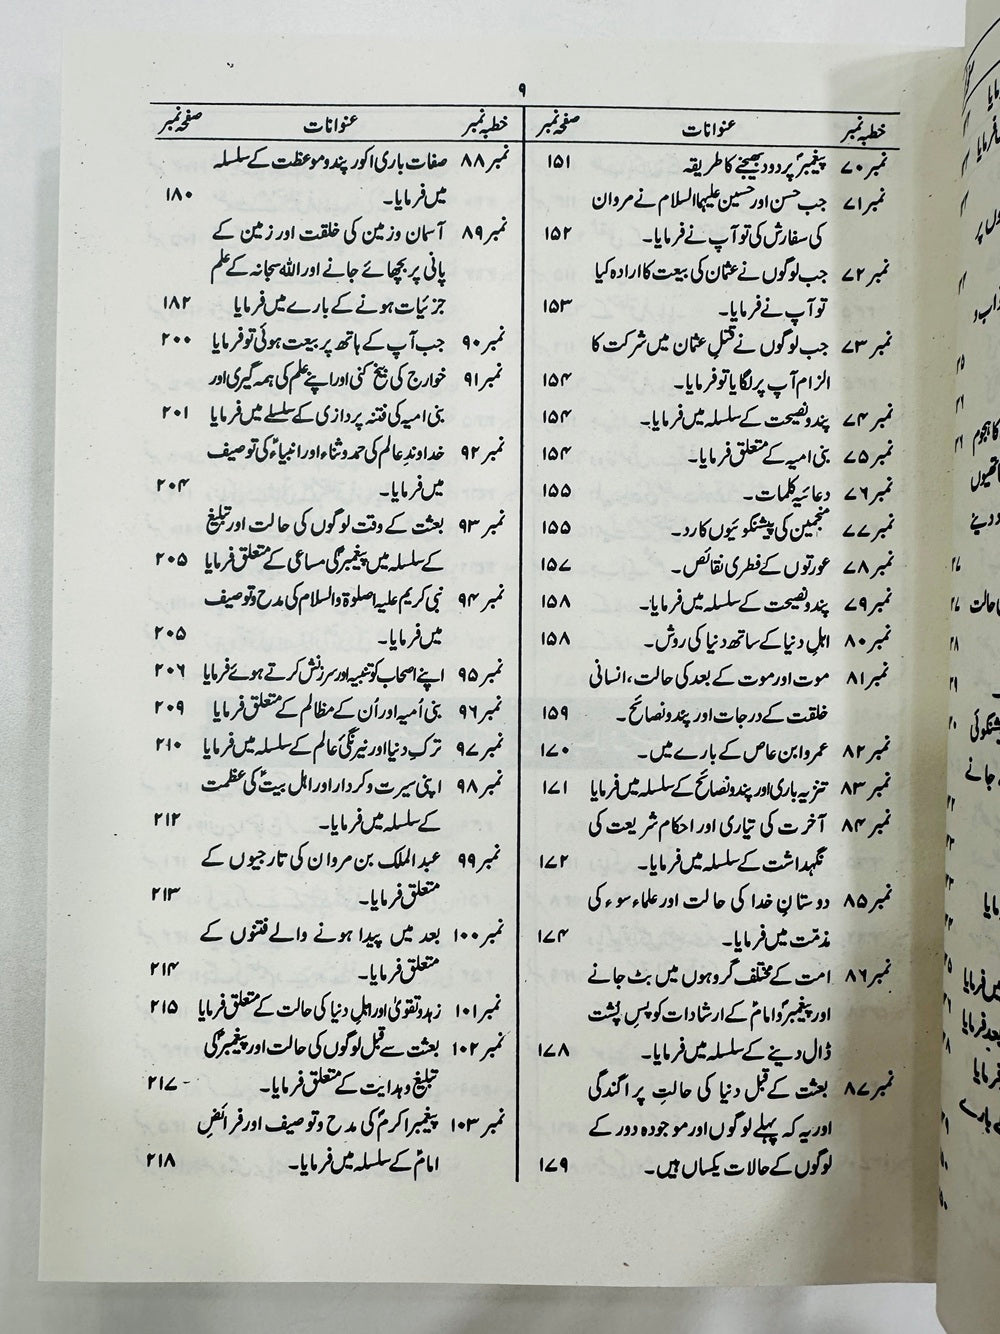 ۹
خطبہ نمبر عنوانات صفحہ نمبر
نمبر ۷۰ پیغمبرؐ پر درود بھیجنے کا طریقہ ۱۵۱
نمبر ۷۱ جب حسن اور حسین علیہما السلام نے مروان
کی سفارش کی تو آپ نے فرمایا۔ ۱۵۲
نمبر ۷۲ جب لوگوں نے عثمان کی بیعت کا ارادہ کیا
تو آپ نے فرمایا۔ ۱۵۳
نمبر ۷۳ جب لوگوں نے قتلِ عثمان میں شرکت کا
الزام آپ پر لگایا تو فرمایا۔ ۱۵۴
نمبر ۷۴ پند و نصیحت کے سلسلہ میں فرمایا۔ ۱۵۴
نمبر ۷۵ بنی امیہ کے متعلق فرمایا۔ ۱۵۴
نمبر ۷۶ دعائیہ کلمات۔ ۱۵۵
نمبر ۷۷ منجمین کی پیشنگوئیوں کا رد۔ ۱۵۵
نمبر ۷۸ عورتوں کے فطری نقائص۔ ۱۵۷
نمبر ۷۹ پند و نصیحت کے سلسلہ میں فرمایا۔ ۱۵۸
نمبر ۸۰ اہلِ دنیا کے ساتھ دنیا کی روش۔ ۱۵۸
نمبر ۸۱ موت اور موت کے بعد کی حالت، انسانی
خلقت کے درجات اور پند و نصائح۔ ۱۵۹
نمبر ۸۲ عمرو ابن عاص کے بارے میں۔ ۱۷۰
نمبر ۸۳ تنزیہ باری اور پند و نصائح کے سلسلہ میں فرمایا ۱۷۱
نمبر ۸۴ آخرت کی تیاری اور احکام شریعت کی
نگہداشت کے سلسلہ میں فرمایا۔ ۱۷۲
نمبر ۸۵ دوستانِ خدا کی حالت اور علماء سوء کی
مذمّت میں فرمایا۔ ۱۷۴
نمبر ۸۶ امت کے مختلف گروہوں میں بٹ جانے
اور پیغمبرؐ و امامؑ کے ارشادات کو پسِ پُشت
ڈال دینے کے سلسلہ میں فرمایا۔ ۱۷۸
نمبر ۸۷ بعثت کے قبل دنیا کی حالتِ پراگندگی
اور یہ کہ پہلے لوگوں اور موجودہ دور کے
لوگوں کے حالات یکساں ہیں۔ ۱۷۹
خطبہ نمبر عنوانات صفحہ نمبر
نمبر ۸۸ صفات باری اکور پند و موعظت کے سلسلہ
میں فرمایا۔ ۱۸۰
نمبر ۸۹ آسمان و زمین کی خلقت اور زمین کے
پانی پر بچھائے جانے اور اللہ سبحانہ کے علم
جزئیات ہونے کے بارے میں فرمایا ۱۸۲
نمبر ۹۰ جب آپ کے ہاتھ پر بیعت ہوئی تو فرمایا ۲۰۰
نمبر ۹۱ خوارج کی بیخ کنی اور اپنے علم کی ہمہ گیری اور
بنی امیہ کی فتنہ پردازی کے سلسلے میں فرمایا ۲۰۱
نمبر ۹۲ خداوندِ عالم کی حمد و ثناء اور انبیاءؑ کی توصیف
میں فرمایا۔ ۲۰۴
نمبر ۹۳ بعثت کے وقت لوگوں کی حالت اور تبلیغ
کے سلسلہ میں پیغمبرؐ کی مساعی کے متعلق فرمایا ۲۰۵
نمبر ۹۴ نبی کریم علیہ اصلوۃ والسلام کی مدح و توصیف
میں فرمایا۔ ۲۰۵
نمبر ۹۵ اپنے اصحاب کو تنبیہ اور سرزنش کرتے ہوئے فرمایا ۲۰۶
نمبر ۹۶ بنی اُمیہ اور اُن کے مظالم کے متعلق فرمایا ۲۰۹
نمبر ۹۷ ترکِ دنیا اور نیرنگئ عالم کے سلسلہ میں فرمایا ۲۱۰
نمبر ۹۸ اپنی سیرت و کردار اور اہل بیتؑ کی عظمت
کے سلسلہ میں فرمایا۔ ۲۱۲
نمبر ۹۹ عبدالملک بن مروان کی تارجیوں کے
متعلق فرمایا۔ ۲۱۳
نمبر ۱۰۰ بعد میں پیدا ہونے والے فتنوں کے
متعلق فرمایا۔ ۲۱۴
نمبر ۱۰۱ زہد و تقویٰ اور اہلِ دنیا کی حالت کے متعلق فرمایا ۲۱۵
نمبر ۱۰۲ بعثت سے قبل لوگوں کی حالت اور پیغمبرؐ کی
تبلیغ و ہدایت کے متعلق فرمایا۔ ۲۱۷
نمبر ۱۰۳ پیغمبر اکرمؐ کی مدح و توصیف اور فرائضِ
امامؑ کے سلسلہ میں فرمایا۔ ۲۱۸